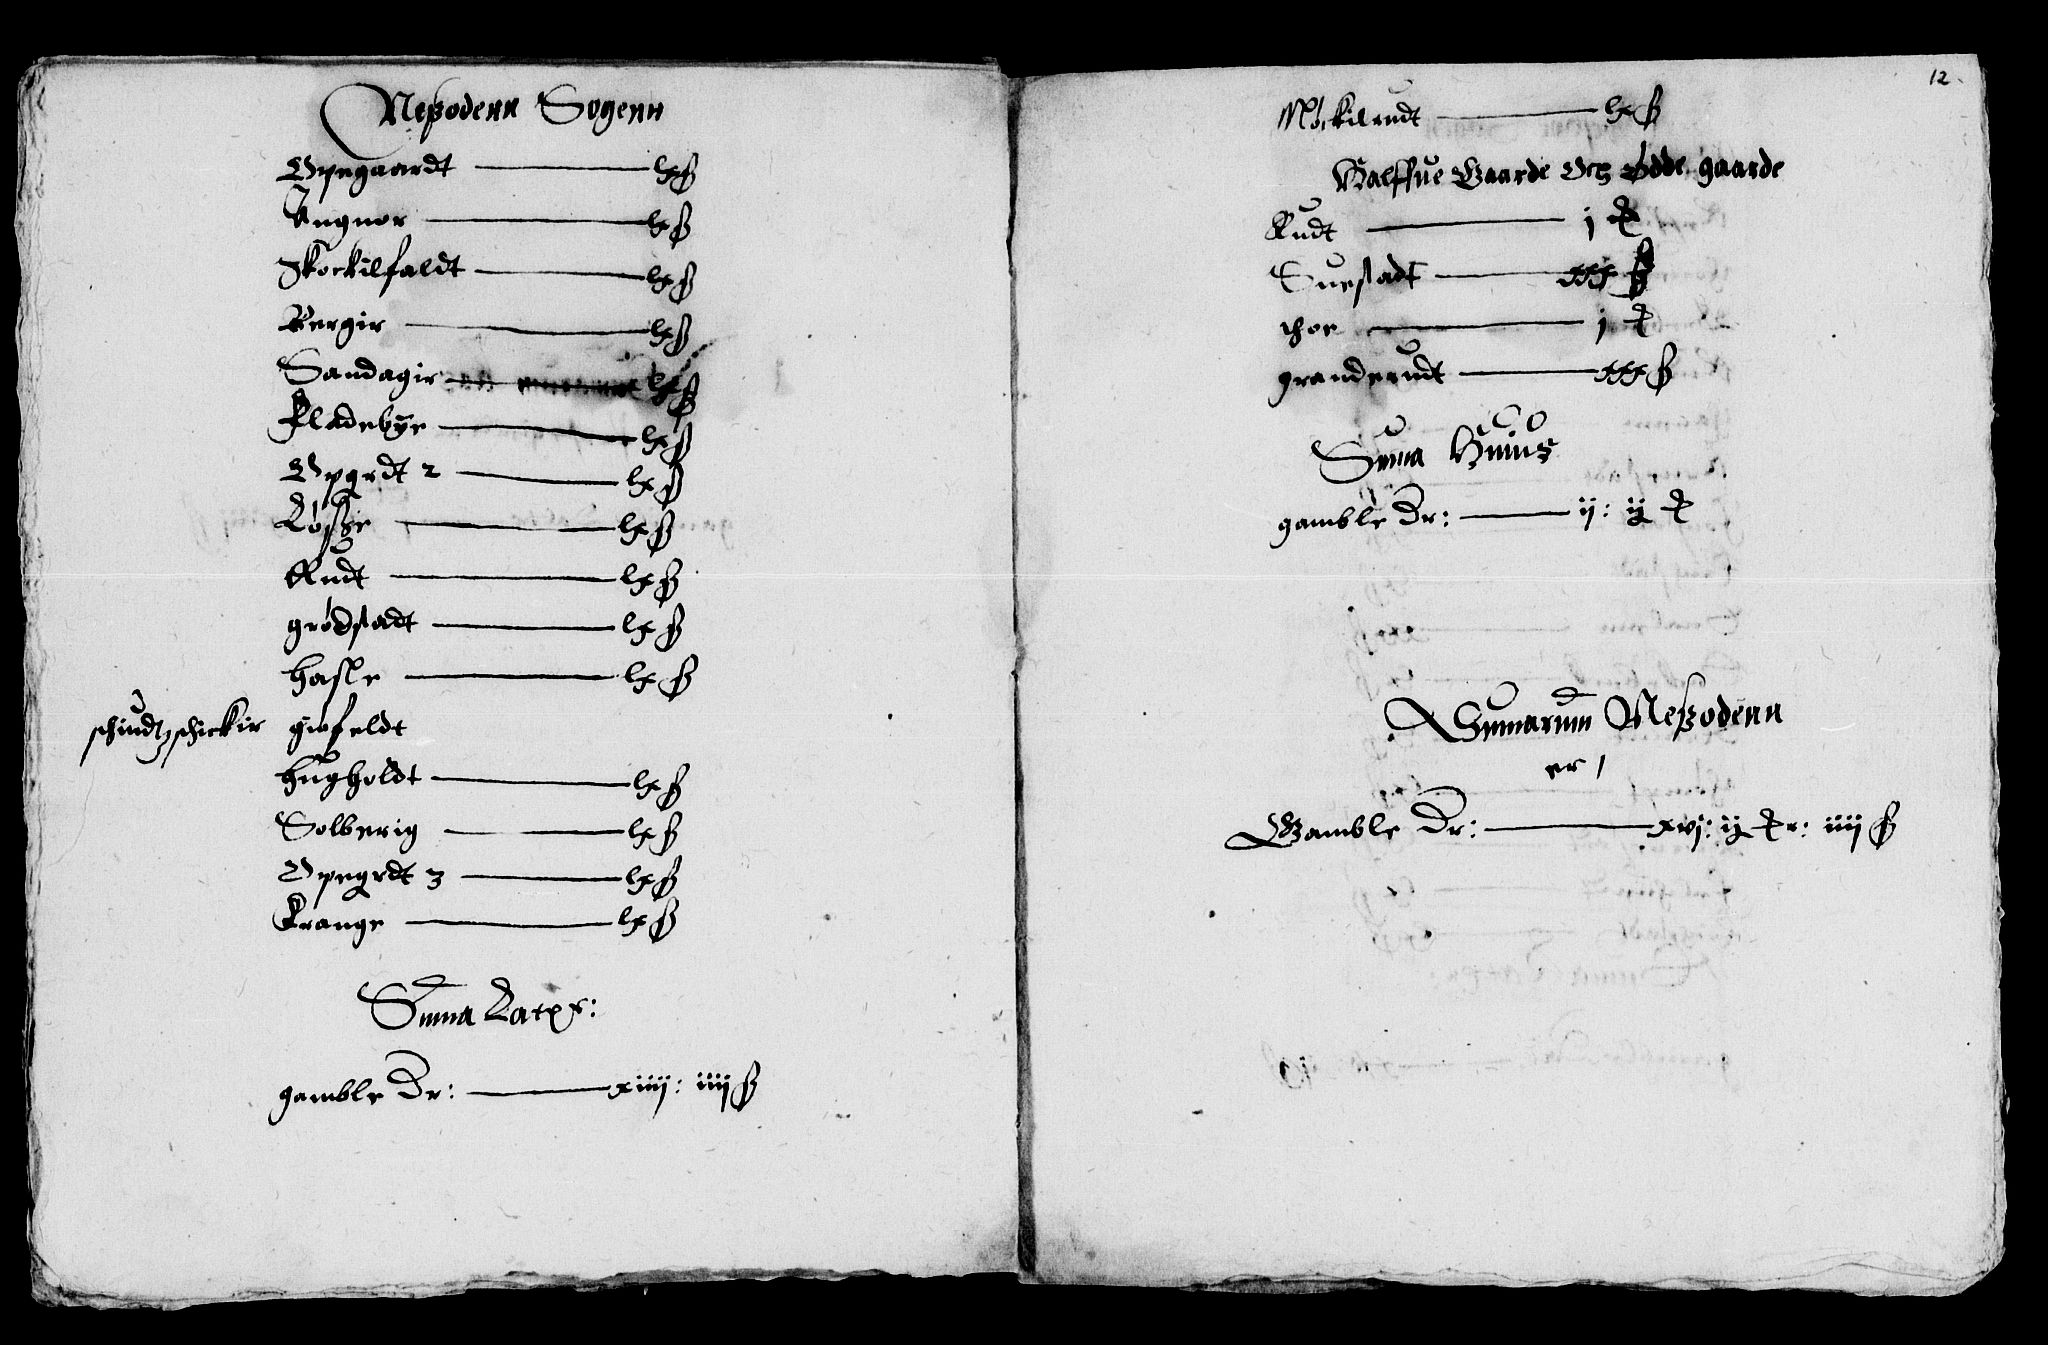 Neßodenn Sogenn
Opegaardt — lx ß
Angnor — lx ß
Skockilfaldt — lx ß
Bergir — lx ß
Sandagir — lx ß
Fladebÿe — lx ß
Opgrdt 2 — lx ß
Løsße — lx ß
Rudt — lx ß
grødstadt — lx ß
hasle — lx ß
schiudtzschickir giøfeldt
hugholdt — lx ß
Solberig — lx ß
Opegrdt 3 — lx ß
Krange — lx ß
Suma Later:
gamble Dr: — xiiij: iiij ß
12
Møckilrudt — lx ß
Halffue Gaarde Och Ødde gaarde
Rudt — j ort
Suestadt — xxx ß
thor — j ort
granderudt — xxx ß
Suma Huius
gamble Dr: — ij: ij ort
Sumarum Neßodenn
er /
Gamble Dr: — xvj: ij ortr: iiij ß